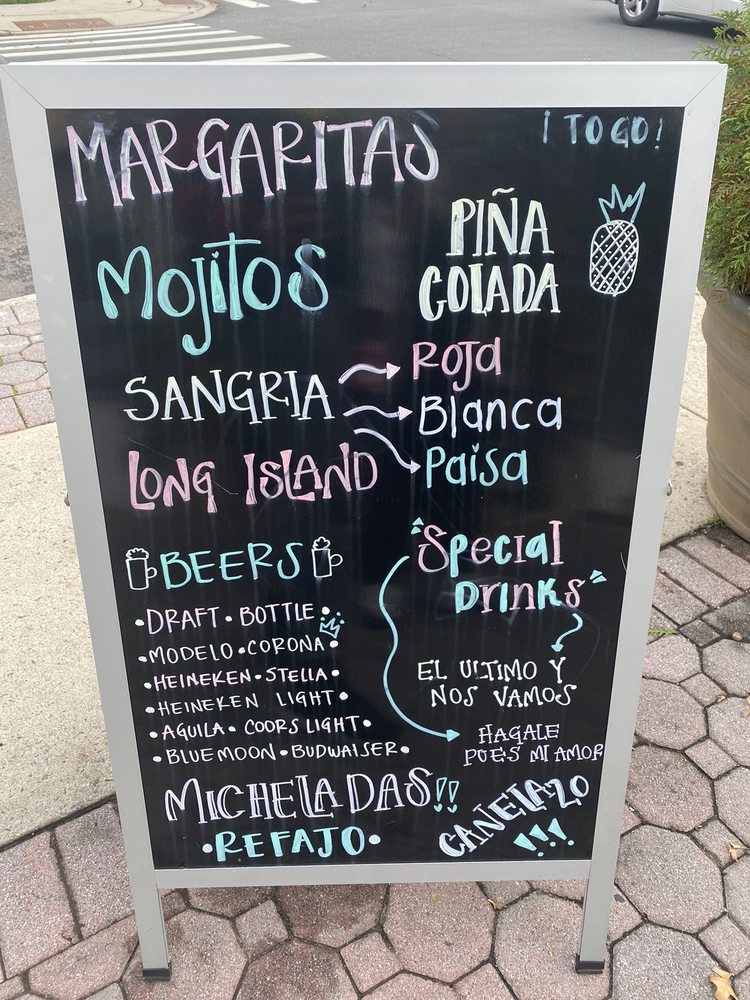 MARGARITAS
¡TO GO!
PIÑA
COLADA
Mojitos
SANGRIA
Roja
Blanca
Paisa
LONG ISLAND
BEERS
•DRAFT•BOTTLE•
•MODELO•CORONA•
•HEINEKEN•STELLA•
•HEINEKEN LIGHT•
•AGUILA•COORS LIGHT•
•BLUEMOON•BUDWAISER•
Special
Drinks
EL ULTIMO Y
NOS VAMOS
HAGALE
PUES MI AMOR
MICHELADAS!!
•REFAJO•
CANELAZO
!!!